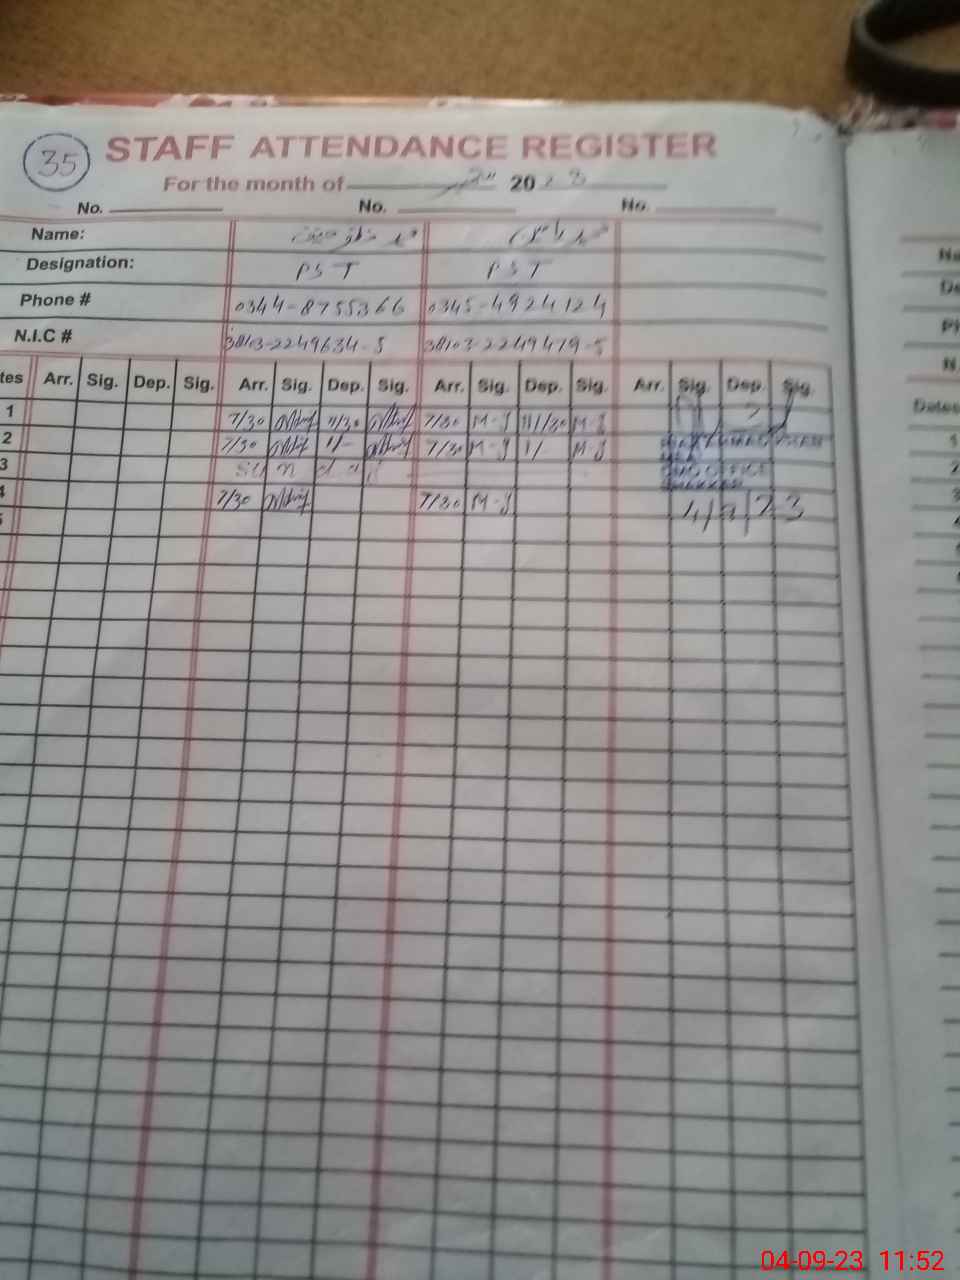 35
STAFF ATTENDANCE REGISTER
For the month of 2023
No. No. No.
Name: محمد محمد
Designation: PST PST
Phone # 0344-8755366 0345-4924124
N.I.C # 38103-2249634-5 38103-2249479-5
tes Arr. Sig. Dep. Sig. Arr. Sig. Dep. Sig. Arr. Sig. Dep. Sig. Arr. Sig. Dep. Sig.
1 7/30 11/30 7/30 M-J 11/30 M-J
2 7/30 11/- 7/30 M-J 11/- M-J
3 Sunday
4 7/30 7/30 M-J
OFFICE
4/9/23
5
Dates
1
2
3
04-09-23 11:52